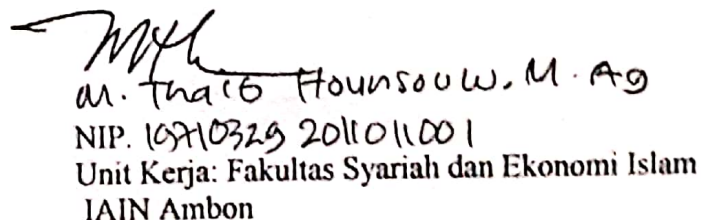 M. Thaib Hounsouw, M. Ag
NIP. 19710329 2011011001
Unit Kerja: Fakultas Syariah dan Ekonomi Islam
IAIN Ambon